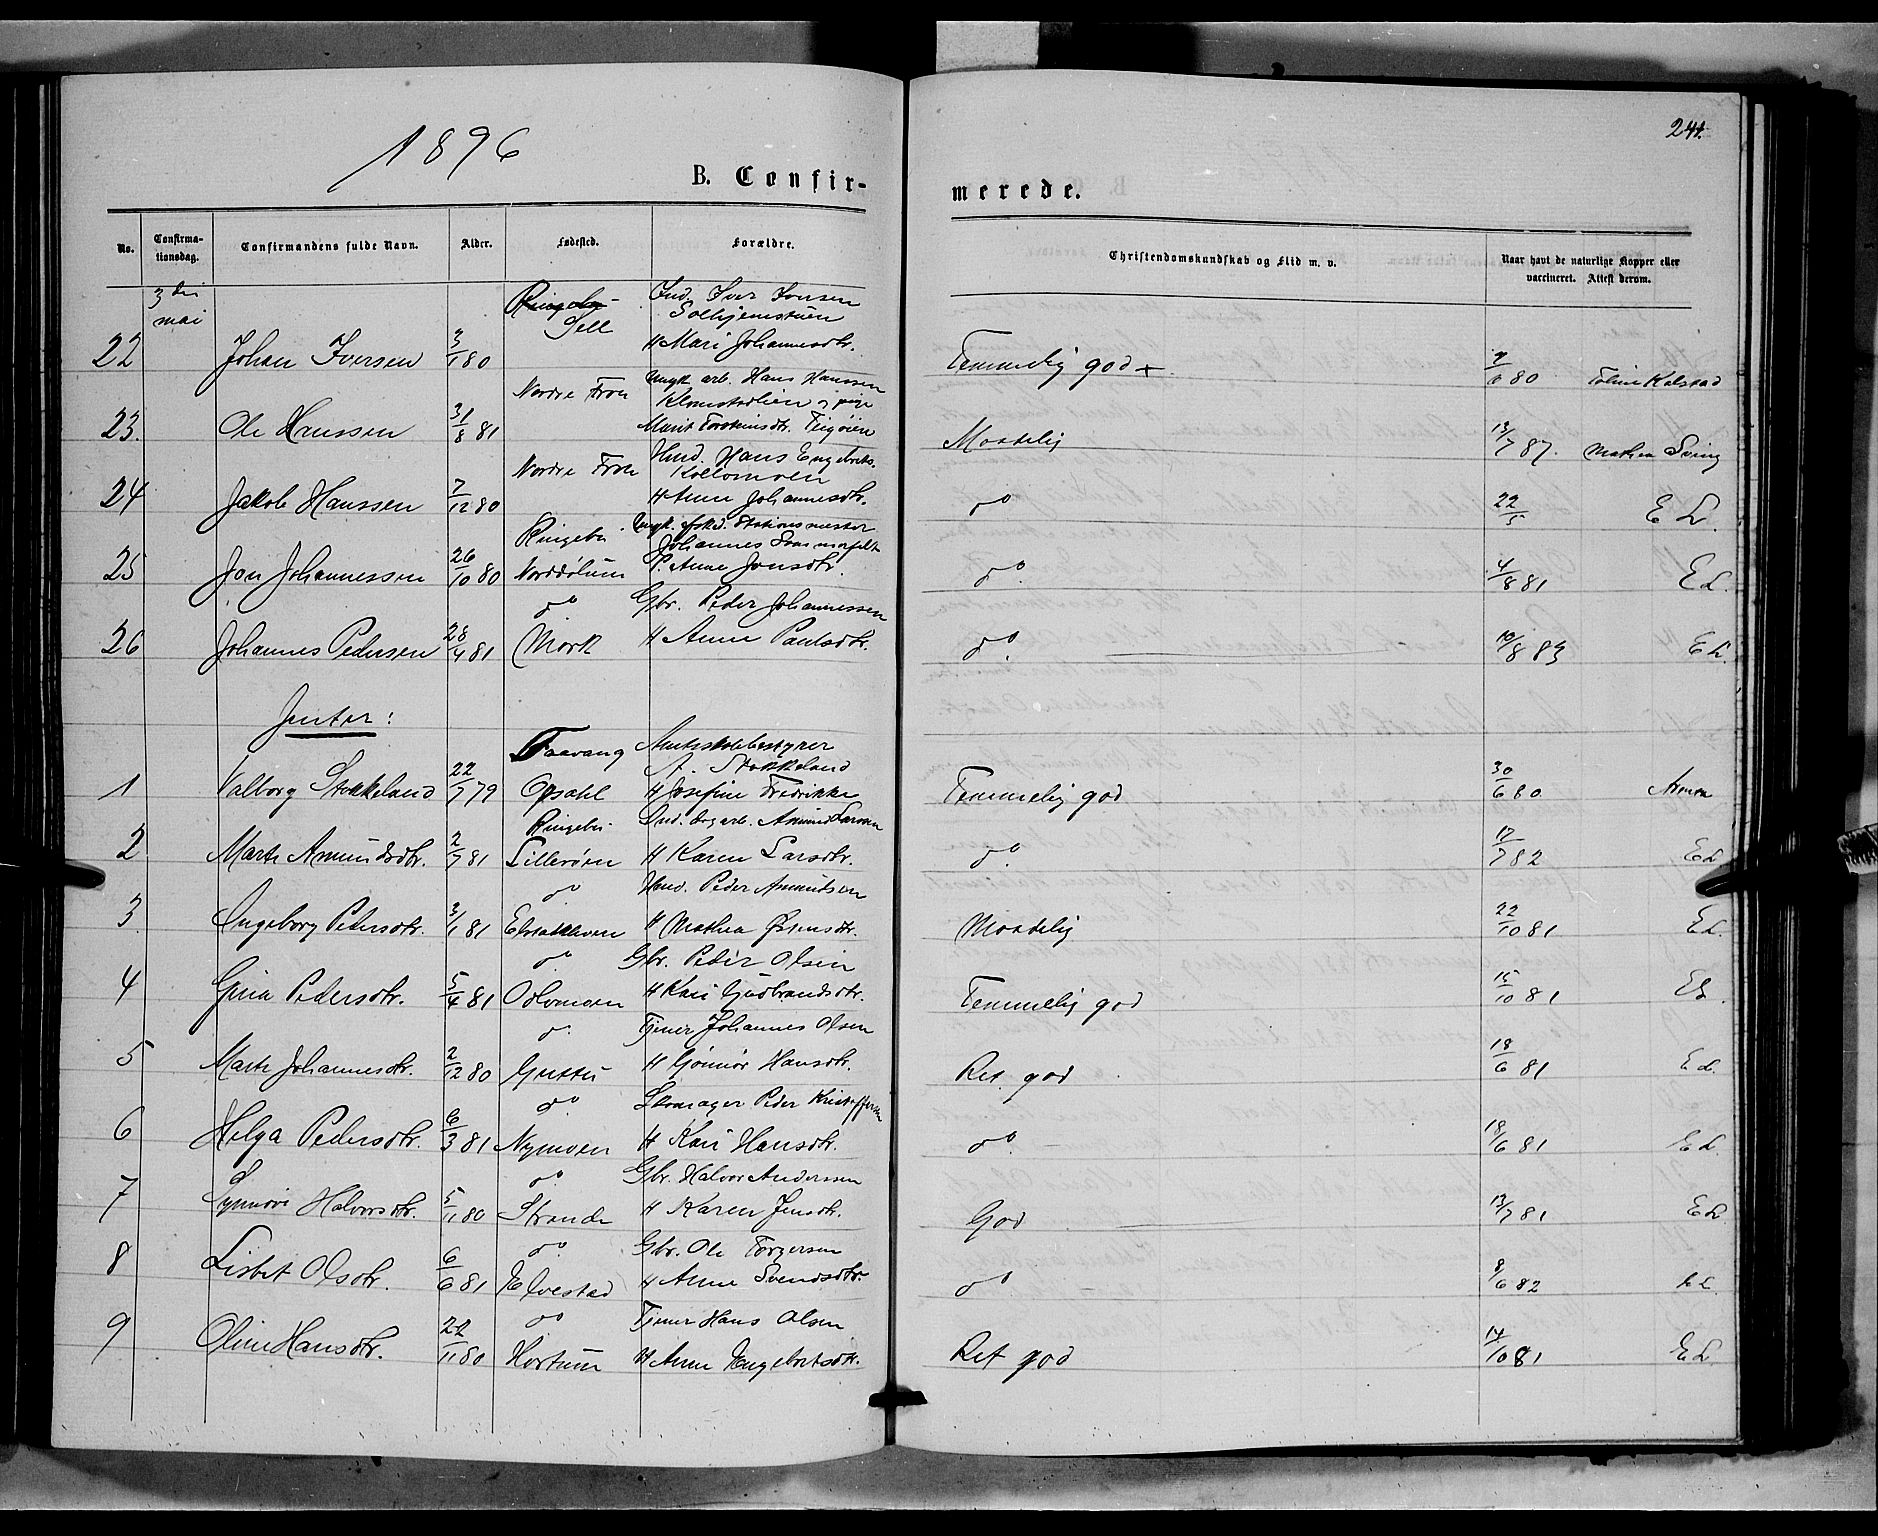 1896
B. Confir-
merede.
241.
No. Confirma-tionsdag. Confirmandens fulde Navn. Alder. Fødested. Forældre. Christendomskundskab og Flid m. v. Naar havt de naturlige Kopper eller vaccineret. Attest derom.
3die mai
Sell Ind. Iver Iversen
Solhjemstuen
22 Johan Iversen 3/1 80 H Mari Johannesdtr. Temmelig god + 9/6 80 Toline Kalstad
Nordre Fron Ungk. arb. Hans Hanssen
Klomstadlien og pige
23. Ole Hanssen 31/8 81 Marit Torsteinsdtr. Teigøien Maadelig 13/7 87. Mathea Sving
Nordre Fron Hmd. Hans Engebrets.
Kollomoen
24 Jakob Hanssen 7/12 80 H Anne Johannesdtr. do 22/5 E L.
Ringebu Ungk. afskd. Stationsmester
Johannes
25 Jon Johannessen 26/10 80 Norddølum P. Anne Jonsdtr. do. 4/8 81 E L.
do Gbr. Peder Johannessen
26 Johannes Pedersen 28/4 81 Mork H Anne Paulsdtr. do. 10/8 83 E L.
Jenter:
Faavang Amtsskolebestyrer
A. Stokkeland
1 Valborg Stokkeland 22/7 79 Opsahl H Josefine Fredrikke Temmelig god 30/6 80
Ringebu Ind. dagarb. Amund Larsen
2 Marte Amundsdtr. 2/7 81 Lillerøen H Karen Larsdtr. do. 17/7 82 E L
do Hmd. Peder Amundsen
3. Ingeborg Pedersdtr. 3/1 81 H Mathea Østensdtr. Maadelig 22/10 81 E L.
do. Gbr. Peder Olsen
4 Gina Pedersdtr. 5/4 81 Odlomoen H Kari Gudbrandsdtr. Temmelig god 15/10 81 E L.
do. Tjener Johannes Olsen
5 Marte Johannesdtr. 2/12 80 Guttu H Gønnør Hansdtr. Ret god 18/6 81 E L.
do Skomager Peder Kristoffersen
6 Helga Pedersdtr. 6/3 81 Nymoen H Kari Hansdtr. do. 18/6 81 E L.
do. Gbr. Halvor Anderssen
7 Synnøve Halvorsdtr. 5/11 80 Strande H Karen Jensdtr. God 13/7 81 E L
do. Gbr. Ole Torgersen
8 Lisbet Olsdtr. 6/6 81 Elvestad H Anne Svendsdtr. do 8/6 82 E L.
do Tjener Hans Olsen
9 Oline Hansdtr. 22/11 80 H Anne Engebretsdtr. Ret god 14/10 81 E L.